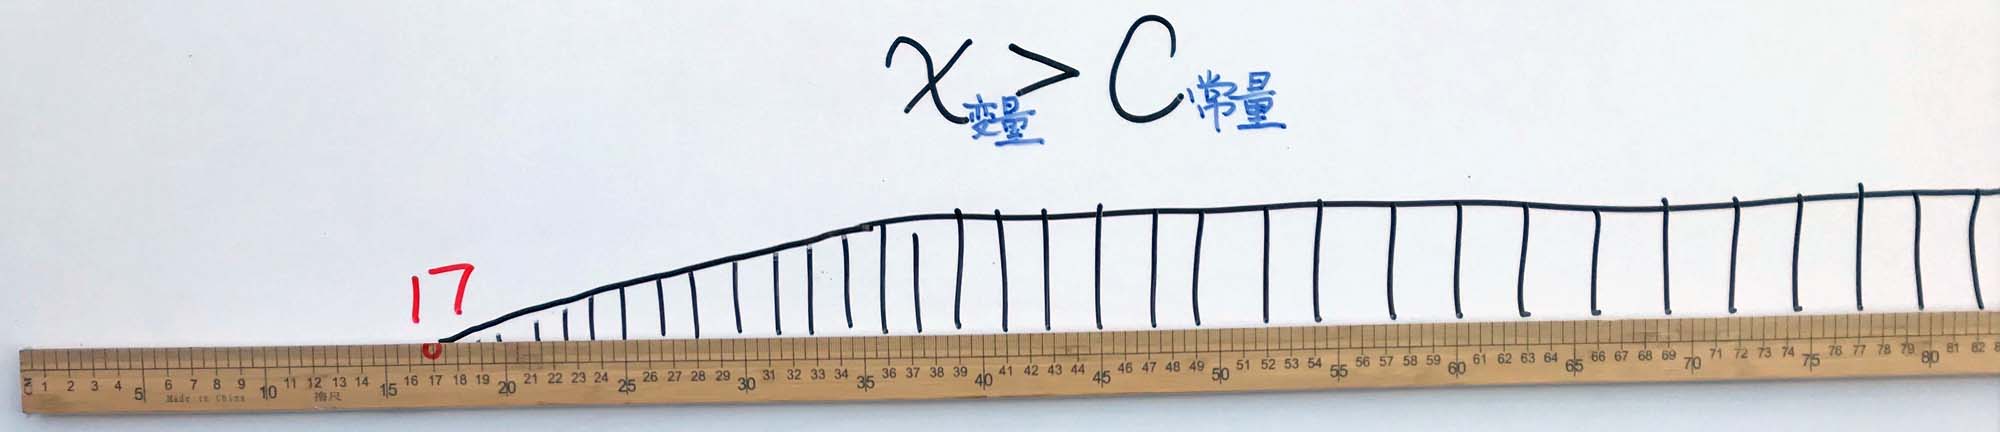 x变量 > C常量
17
CM 1 2 3 4 5 6 7 8 9 10 11 12 13 14 15 16 17 18 19 20 21 22 23 24 25 26 27 28 29 30 31 32 33 34 35 36 37 38 39 40 41 42 43 44 45 46 47 48 49 50 51 52 53 54 55 56 57 58 59 60 61 62 63 64 65 66 67 68 69 70 71 72 73 74 75 76 77 78 79 80 81 82
Made in China